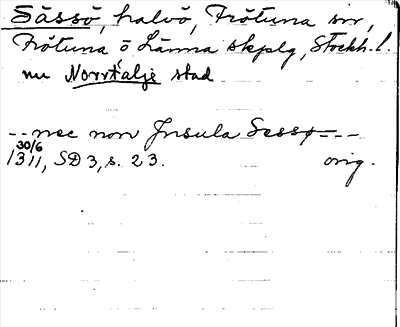 Sässö, halvö, Frötuna sn,
Frötuna o Länna skplg, Stockh. l.
nu Norrtälje stad
-- nec non Insula Sessø ---
30/6
1311, SD 3, s. 23. orig.